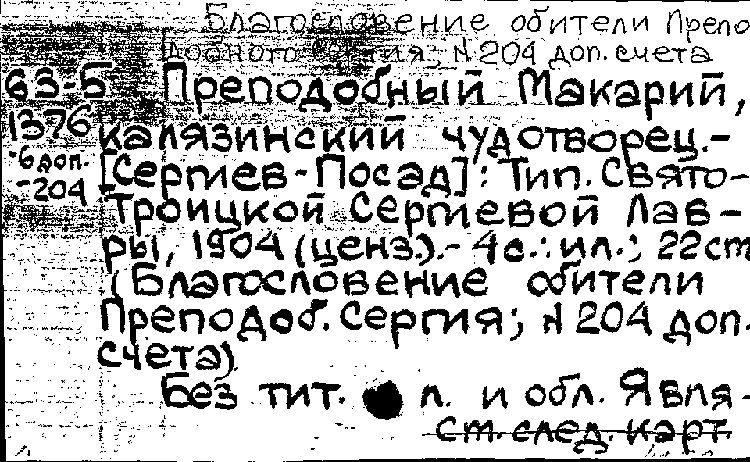 Благословение обители Препо
добного Сергия; N 204 доп. счета
63-5 Преподобный Макарий,
1376 калязинский чудотворец.-
-6 доп. [Сергиев-Посад]: Тип. Свято-
-204 Троицкой Сергиевой Лав-
ры, 1904 (ценз.).- 4 с.: ил.; 22 см
(Благословение обители
Преподоб. Сергия; N 204 доп.
счета)
Без тит. л. и обл. Явля-
см. след. карт